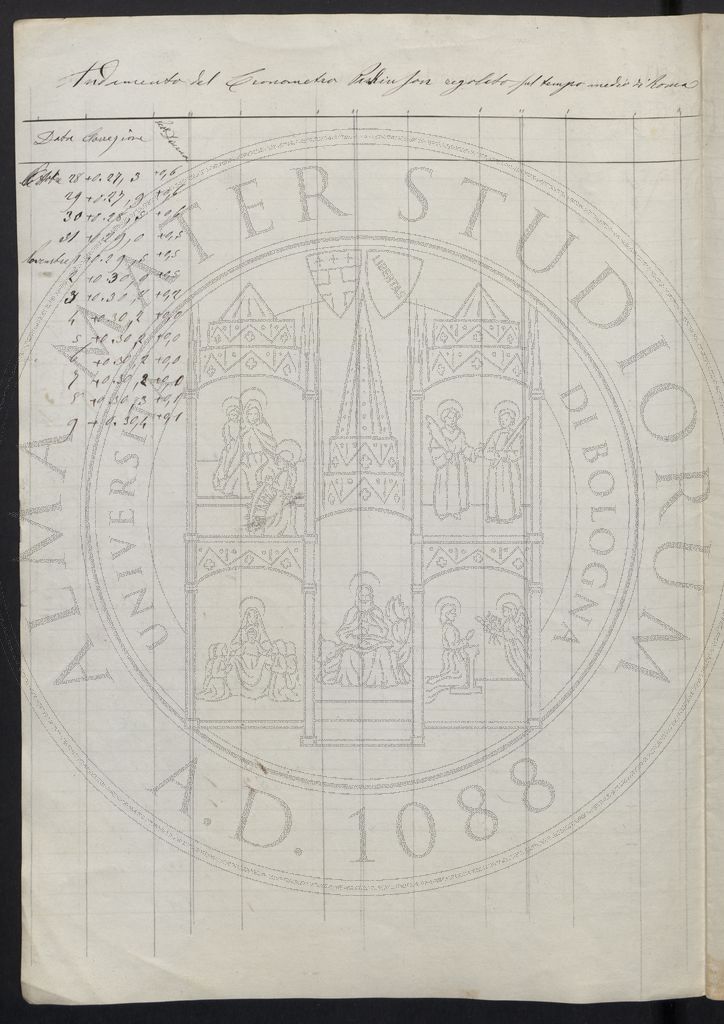 Andamento del Cronometro Parkinson regolato sul tempo medio di Roma
Data Correzione
28 +0.27,3 +0,6
29 +0.27,9 +0,6
30 +0.28,5 +0,6
31 +0.29,0 +0,5
Novembre 1 +0.29,5 +0,5
2 +0.30,0 +0,5
3 +0.30,2 +0,2
4 +0.30,2 +0,0
5 +0.30,2 +0,0
6 +0.30,2 +0,0
7 +0.30,2 +0,0
8 +0.30,3 +0,1
9 +0.30,4 +0,1
ALMA MATER STUDIORUM
UNIVERSITÀ DI BOLOGNA
LIBERTAS
A.D. 1088